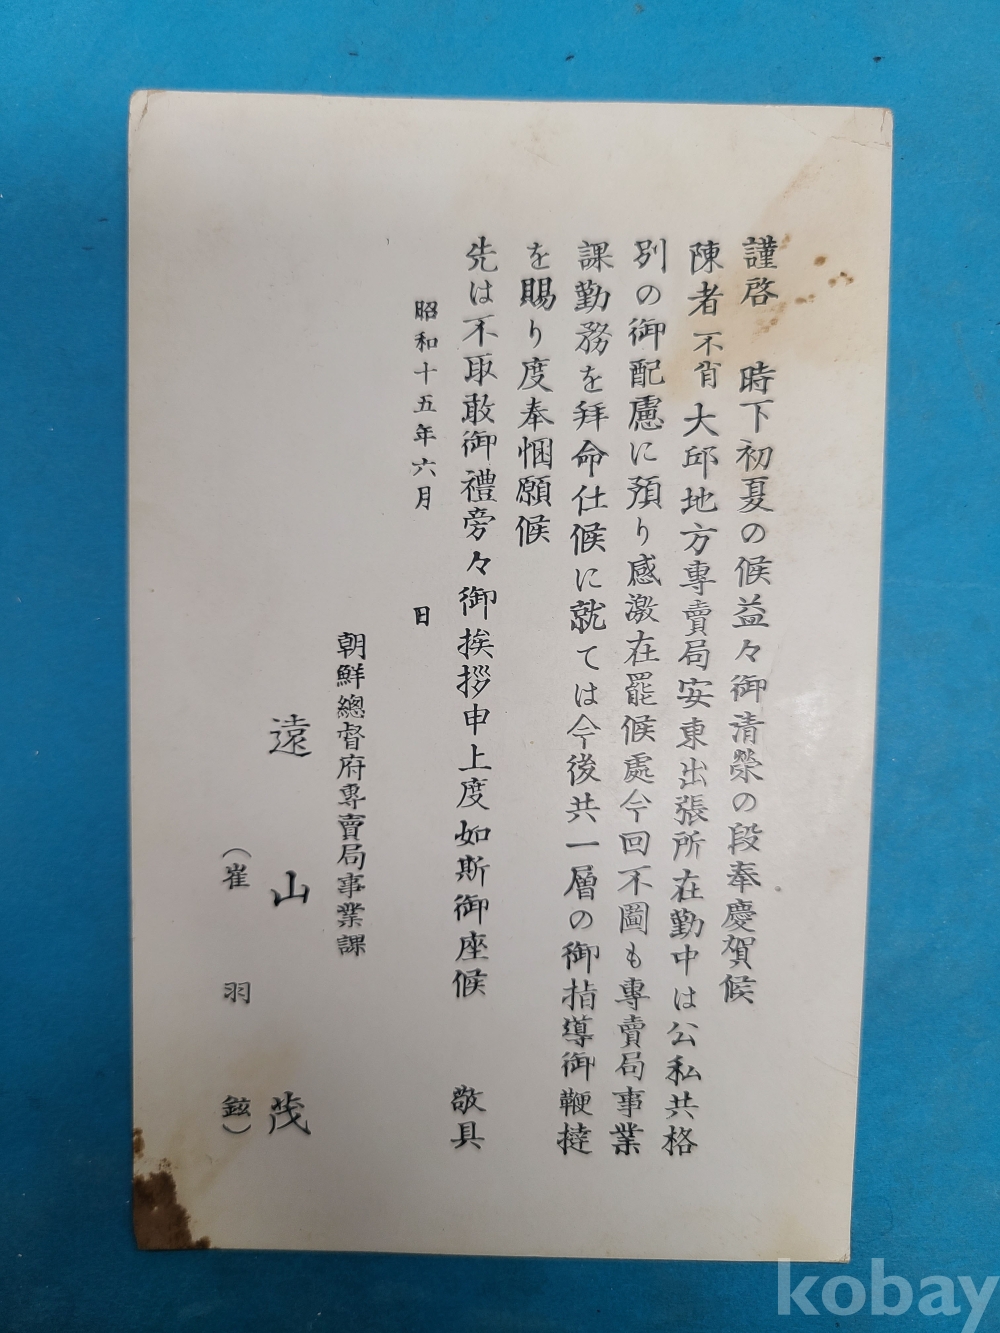 謹啓 時下初夏の候益々御清榮の段奉慶賀候
陳者不肖大邱地方專賣局安東出張所在勤中は公私共格
別の御配慮に預り感激在罷候處今回不圖も專賣局事業
課勤務を拜命仕候に就ては今後共一層の御指導御鞭撻
を賜り度奉悃願候
先は不取敢御禮旁々御挨拶申上度如斯御座候 敬具
昭和十五年六月 日
朝鮮總督府專賣局事業課
遠山茂
(崔羽鉉)
kobay